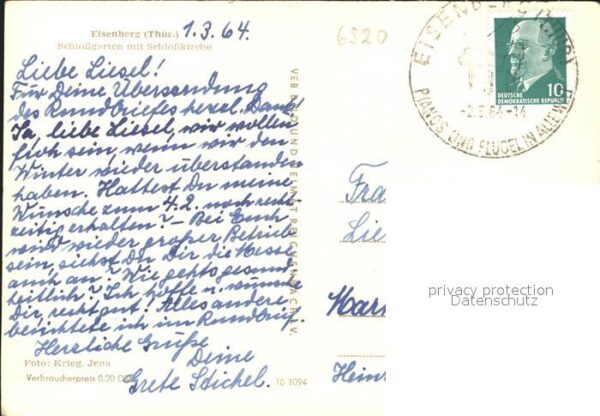 Eisenberg (Thür.) 1.3.64.
Schloßgarten mit Schloßkirche
6520
Liebe Liesel!
Für Deine Übersendung
des Rundbriefes herzl. Dank!
Ja, liebe Liesel, wir wollen
froh sein, wenn wir den
Winter wieder überstanden
haben. Hattest Du meine
Wünsche zum 4.2. noch recht-
zeitig erhalten? – Bei Euch
wird wieder großer Betrieb
sein, siehst Du Dir die Messe
auch an? Wie gehts gesund-
heitlich? Ich hoffe u. wünsche
Dir recht gut! Alles andere
berichtete ich im Rundbrief.
Herzliche Grüße
Deine
Grete
Foto: Krieg, Jena
Verbraucherpreis 0,20 DM
10 1094
VEB BILD UND HEIMAT REICHENBACH I. V.
EISENBERG (THÜR)
PIANOS UND FLÜGEL IN ALLE WELT
64-14
10
DEUTSCHE
DEMOKRATISCHE REPUBLIK
Fra
Lie
Mar
Hein
privacy protection
Datenschutz